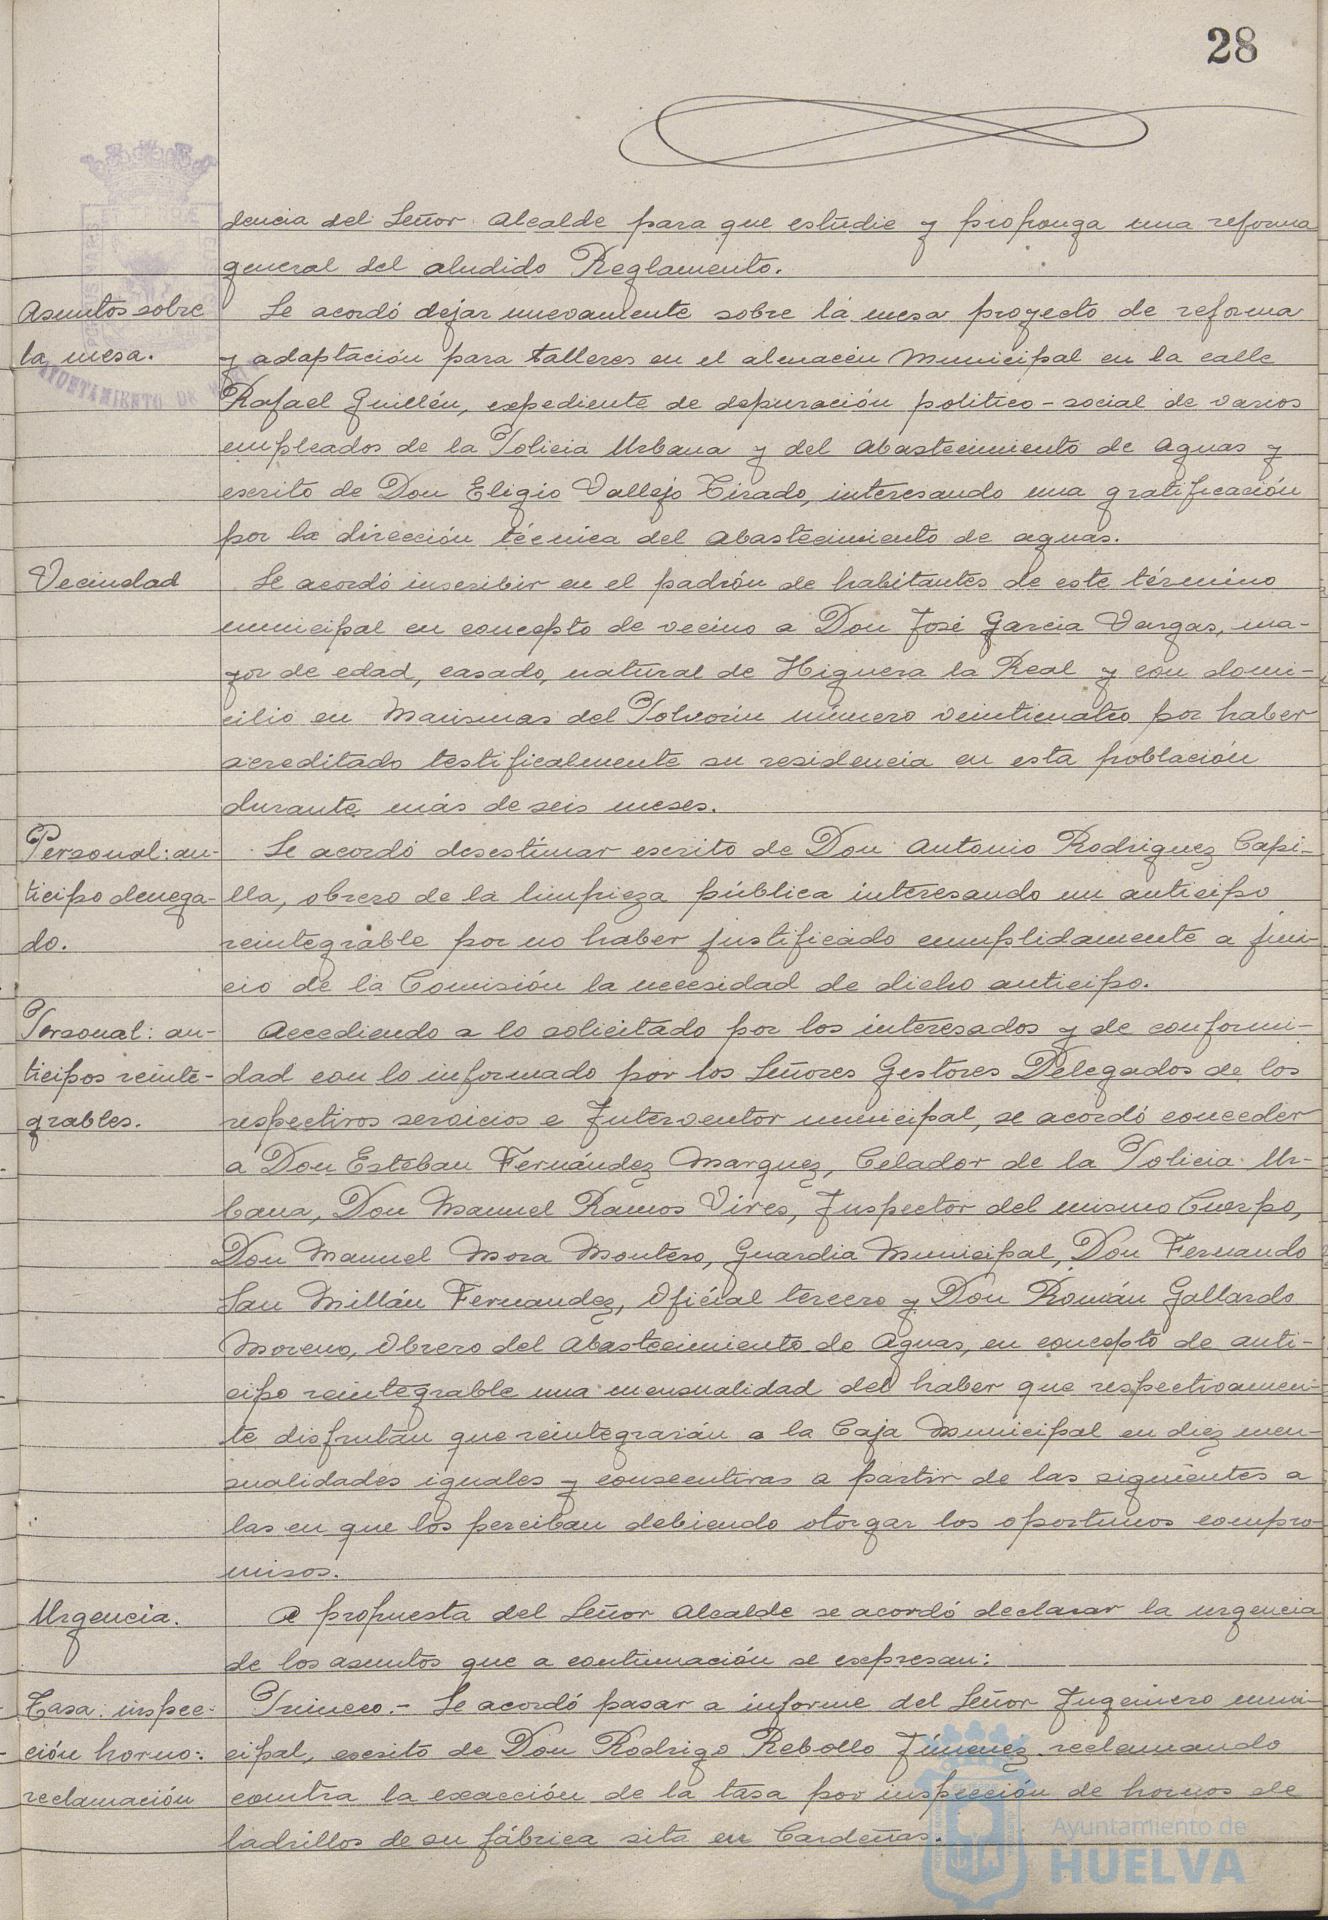 28
dencia del Señor Alcalde para que estudie y proponga una reforma
general del aludido Reglamento.
Asuntos sobre
la mesa.
Se acordó dejar nuevamente sobre la mesa proyecto de reforma
y adaptación para talleres en el almacén Municipal en la calle
Rafael Guillén, expediente de depuración politico-social de varios
empleados de la Policia Urbana y del Abastecimiento de Aguas y
escrito de Don Eligio Vallejo Tirado, interesando una gratificación
por la dirección técnica del Abastecimiento de aguas.
Vecindad
Se acordó inscribir en el padrón de habitantes de este término
municipal en concepto de vecino a Don José Garcia Vargas, ma-
yor de edad, casado, natural de Higuera la Real y con domi-
cilio en Marismas del Polvorin número veinticuatro por haber
acreditado testificalmente su residencia en esta población
durante más de seis meses.
Personal: an-
ticipo denega-
do.
Se acordó desestimar escrito de Don Antonio Rodriguez Capi-
lla, obrero de la limpieza pública interesando un anticipo
reintegrable por no haber justificado cumplidamente a jui-
cio de la Comisión la necesidad de dicho anticipo.
Personal: an-
ticipos reinte-
grables.
Accediendo a lo solicitado por los interesados y de conformi-
dad con lo informado por los Señores Gestores Delegados de los
respectivos servicios e Interventor municipal, se acordó conceder
a Don Esteban Fernández Marquez, Celador de la Policia Ur-
bana, Don Manuel Ramos Vires, Inspector del mismo Cuerpo,
Don Manuel Mora Montero, Guardia Municipal, Don Fernando
San Millán Fernandez, Oficial tercero y Don Román Gallardo
Moreno, Obrero del Abastecimiento de Aguas, en concepto de anti-
cipo reintegrable una mensualidad del haber que respectivamen-
te disfrutan que reintegrarán a la Caja Municipal en diez men-
sualidades iguales y consecutivas a partir de las siguientes a
las en que los perciban debiendo otorgar los oportunos compro-
misos.
Urgencia.
A propuesta del Señor Alcalde se acordó declarar la urgencia
de los asuntos que a continuación se expresan:
Tasa: inspec-
ción horno:
reclamación
Primero.- Se acordó pasar a informe del Señor Ingeniero muni-
cipal, escrito de Don Rodrigo Rebollo Jimenez reclamando
contra la exacción de la tasa por inspección de hornos de
ladrillos de su fábrica sita en Cardeñas.
AYUNTAMIENTO DE
Ayuntamiento de
HUELVA